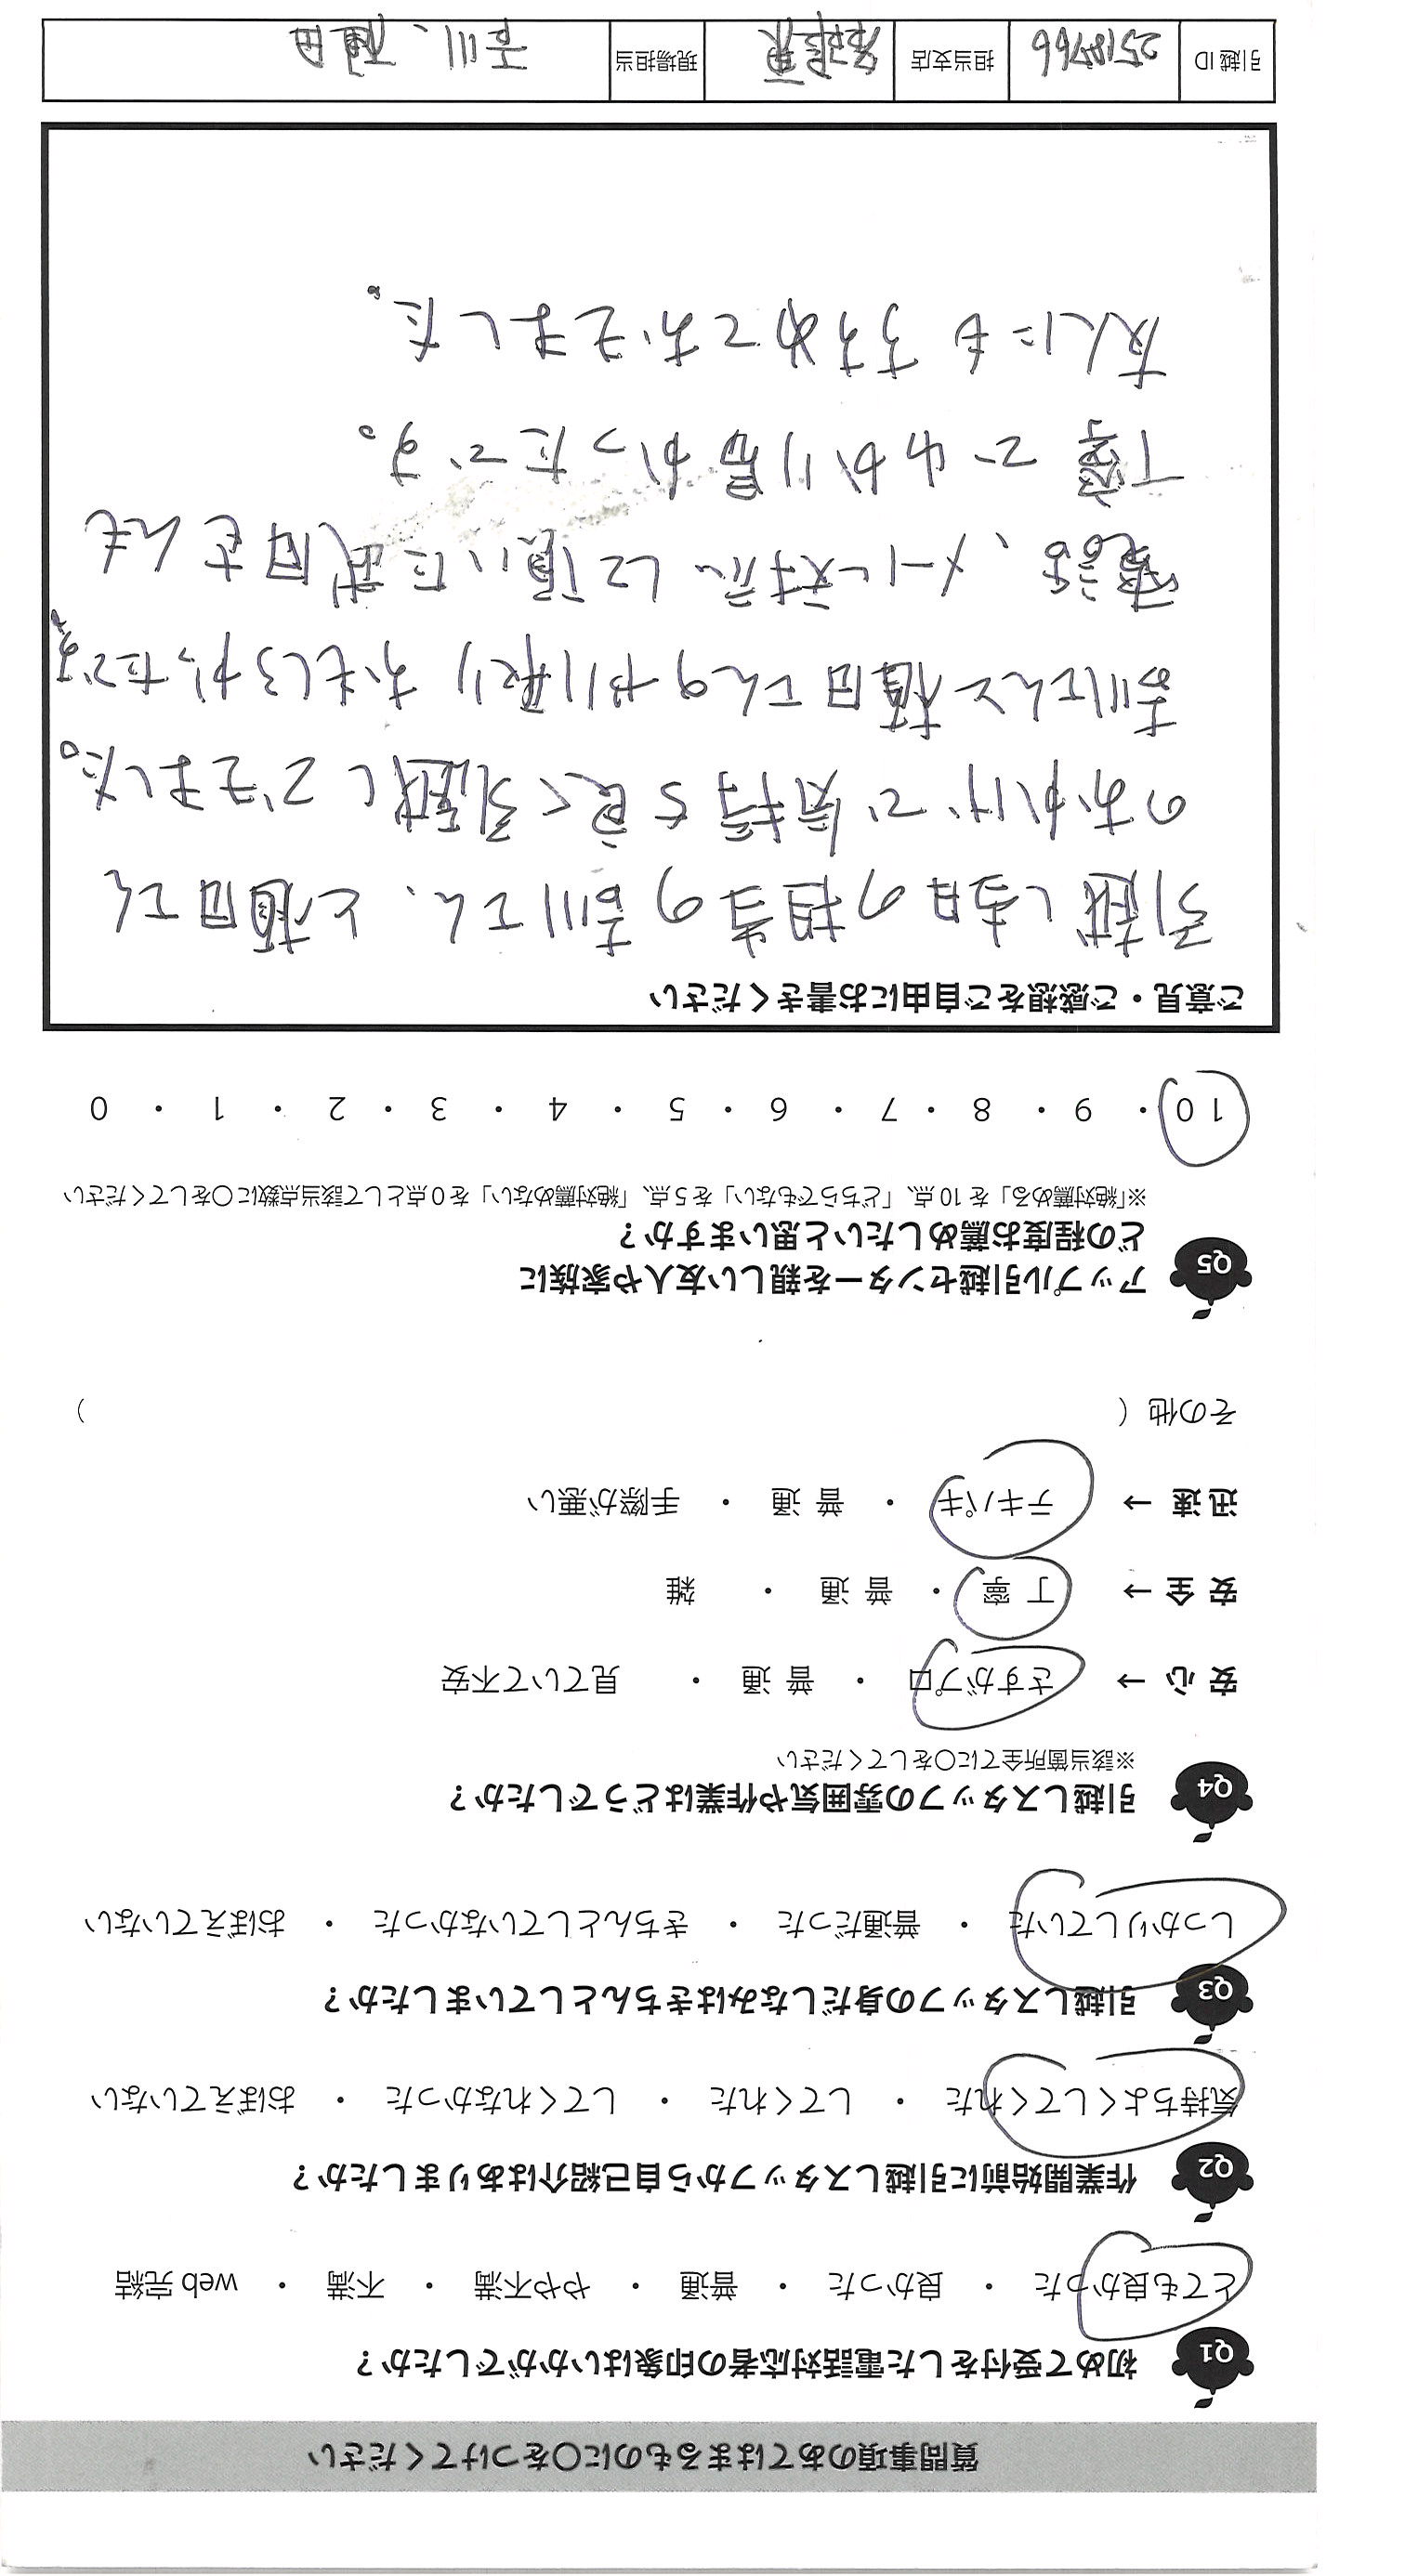 質問事項のあてはまるものに○をつけてください
Q1 初めて受付をした電話対応者の印象はいかがでしたか?
とても良かった ・ 良かった ・ 普通 ・ やや不満 ・ 不満 ・ web完結
Q2 作業開始前に引越しスタッフから自己紹介はありましたか?
気持ちよくしてくれた ・ してくれた ・ してくれなかった ・ おぼえていない
Q3 引越しスタッフの身だしなみはきちんとしていましたか?
しっかりしていた ・ 普通だった ・ きちんとしていなかった ・ おぼえていない
Q4 引越しスタッフの雰囲気や作業はどうでしたか?
※該当箇所全てに○をしてください
安心 → さすがプロ ・ 普通 ・ 見ていて不安
安全 → 丁寧 ・ 普通 ・ 雑
迅速 → テキパキ ・ 普通 ・ 手際が悪い
その他 ( )
Q5 アップル引越センターを親しい友人や家族に
どの程度お薦めしたいと思いますか?
※「絶対薦める」を10点、「どちらでもない」を5点、「絶対薦めない」を0点として該当点数に○をしてください
10 ・ 9 ・ 8 ・ 7 ・ 6 ・ 5 ・ 4 ・ 3 ・ 2 ・ 1 ・ 0
ご意見・ご感想をご自由にお書きください
引越し当日の担当の吉川さん、と植田さん
のおかげで気持ち良く引越しできました。
吉川さんと植田さんのやり取りおもしろかったです。
電話、メール対応して頂いた武田さんも
丁寧でわかり易かったです。
友人にもすすめておきました。
引越ID 25187766 担当支店 現場担当 吉川、植田